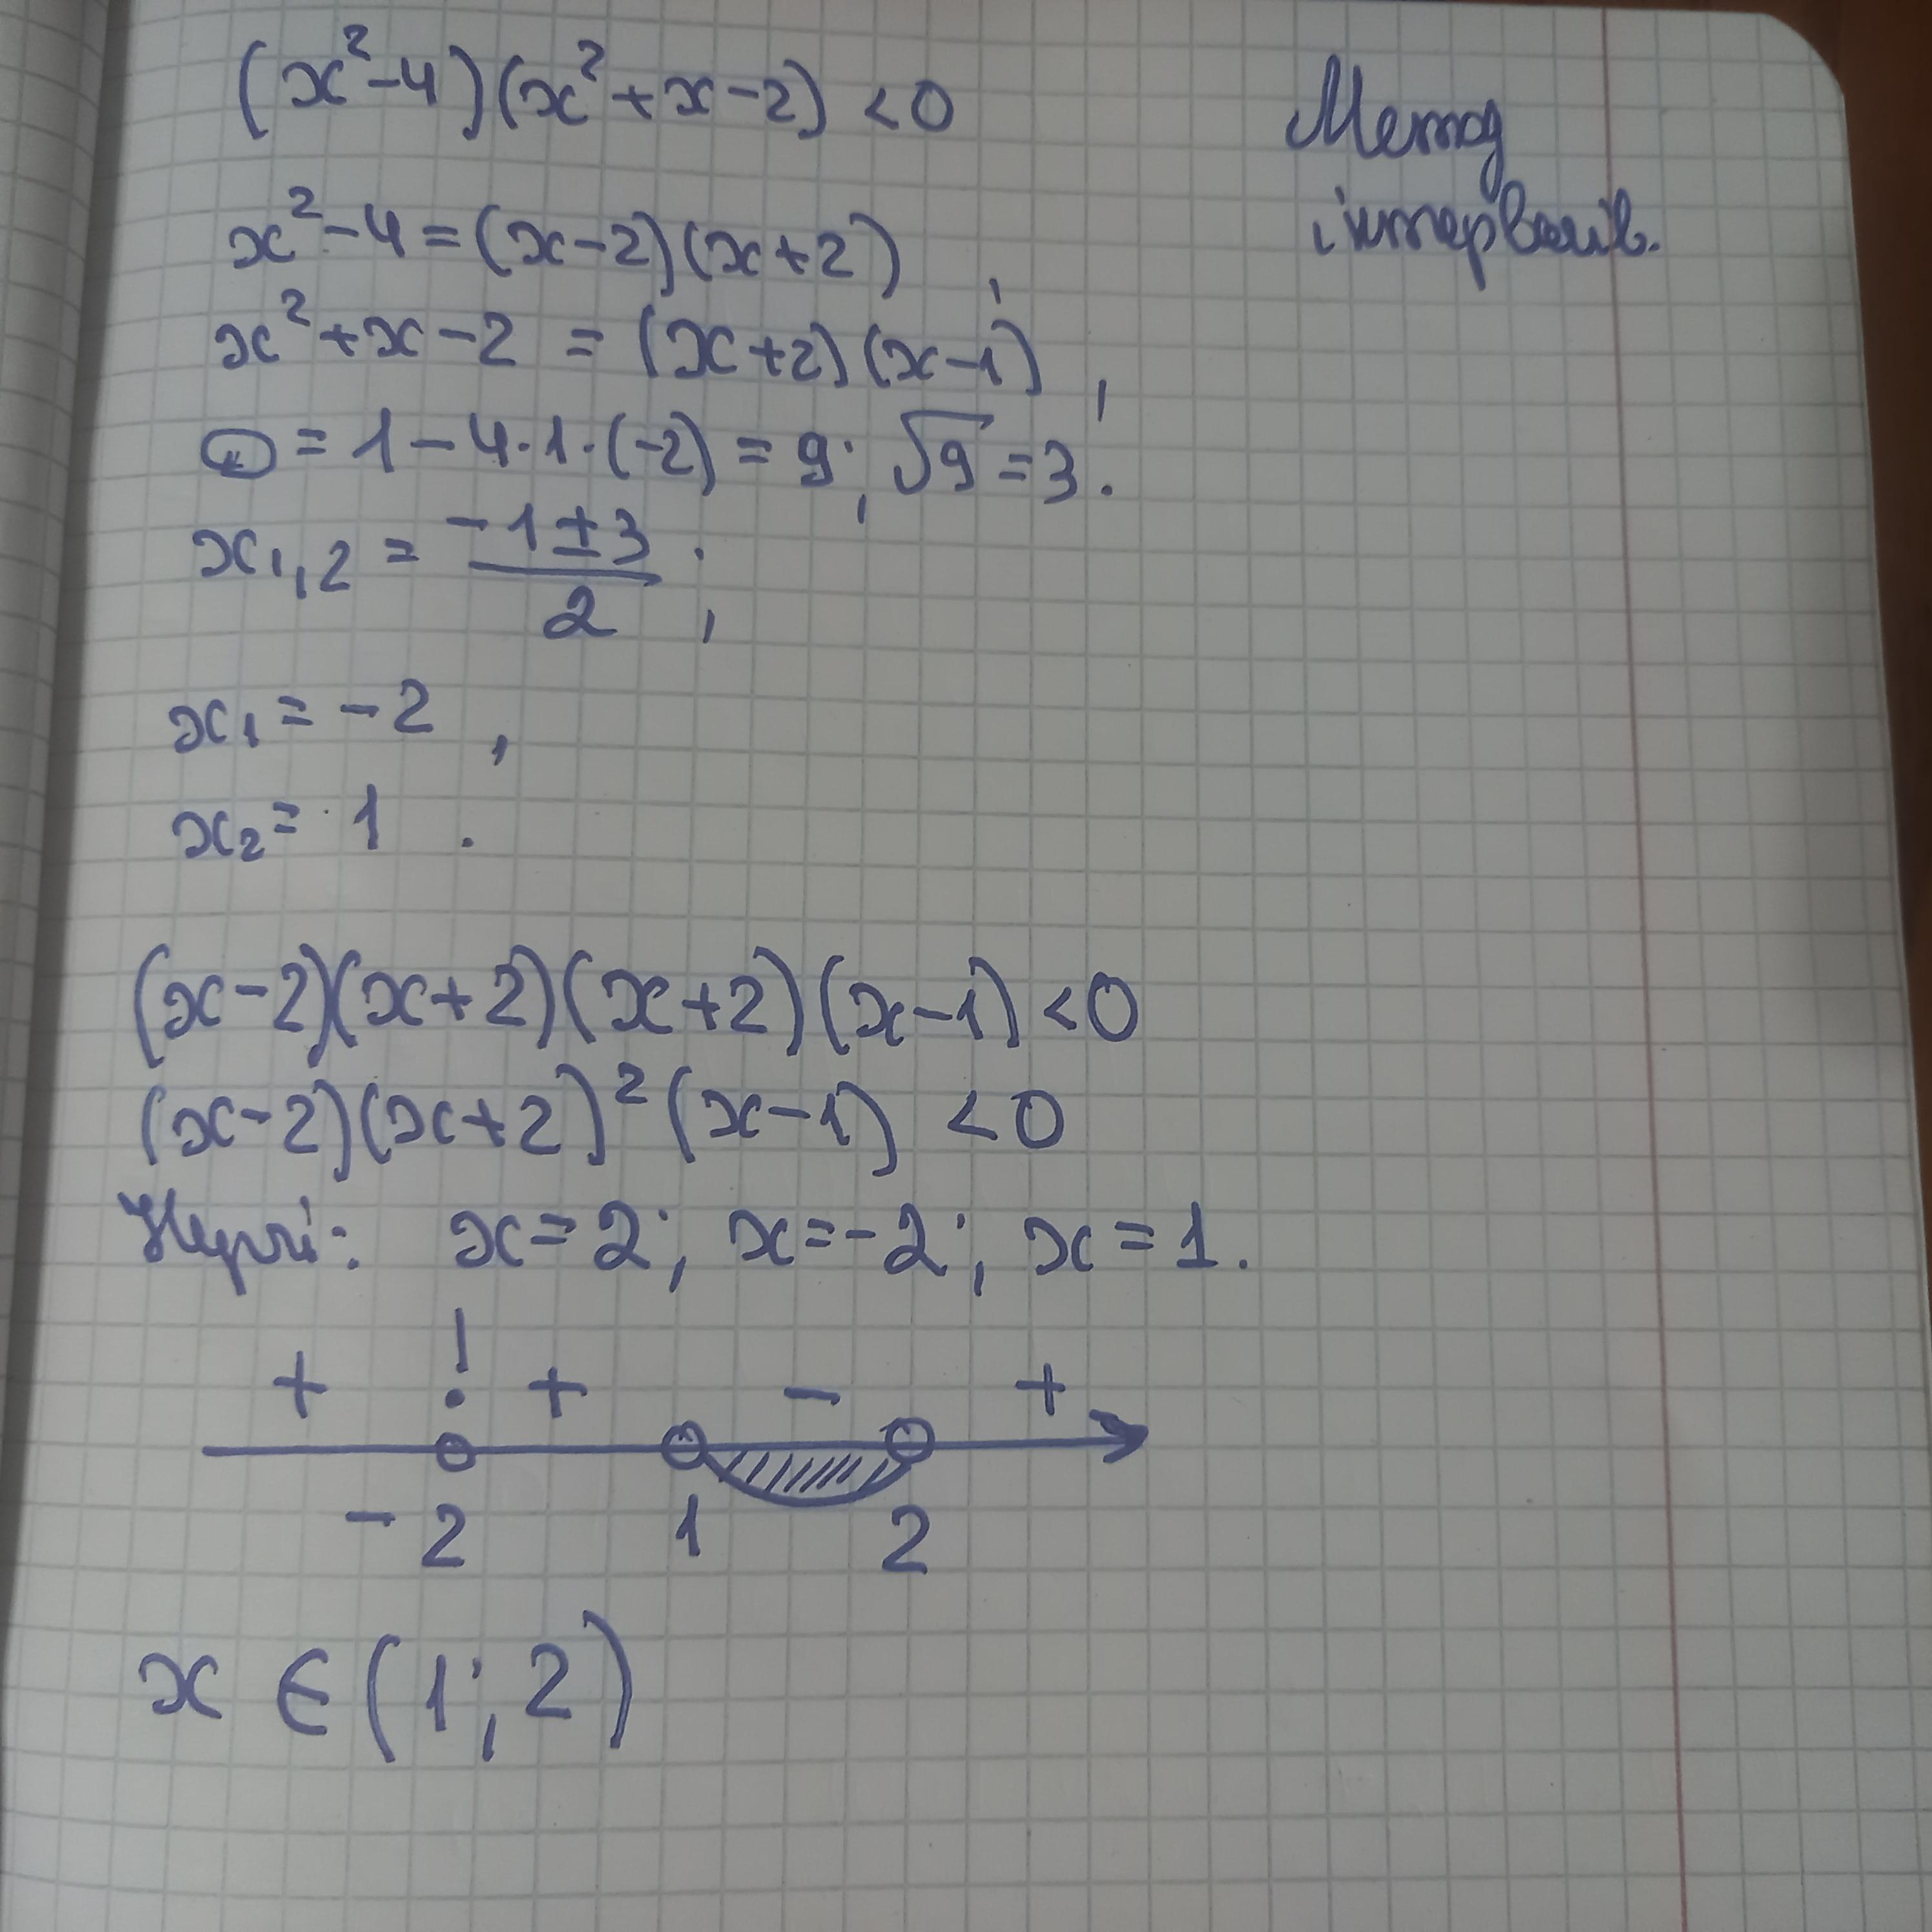 (x²-4)(x²+x-2) <0
Метод
інтервалів.
x²-4=(x-2)(x+2),
x²+x-2 = (x+2)(x-1),
D = 1-4·1·(-2) = 9; √9=3.
x1,2 = (-1±3)/2;
x1 = -2,
x2 = 1.
(x-2)(x+2)(x+2)(x-1)<0
(x-2)(x+2)²(x-1) <0
Нулі: x=2; x=-2; x=1.
+ ! + - +
-2 1 2
x ∈ (1; 2)